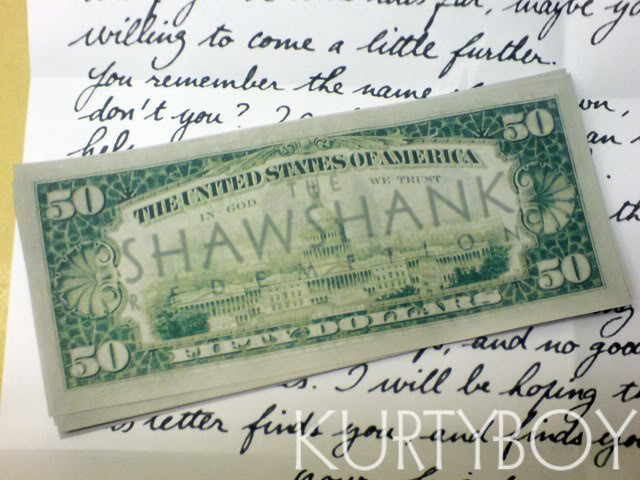 far, maybe yo
willing to come a little further.
You remember the name own,
don't you? I
an
50 50
THE UNITED STATES OF AMERICA
THE
IN GOD WE TRUST
SHAWSHANK
REDEMPTION
50 50
FIFTY DOLLARS
and no good
s. I will be hoping t
is letter finds you, and finds you
KURTYBOY